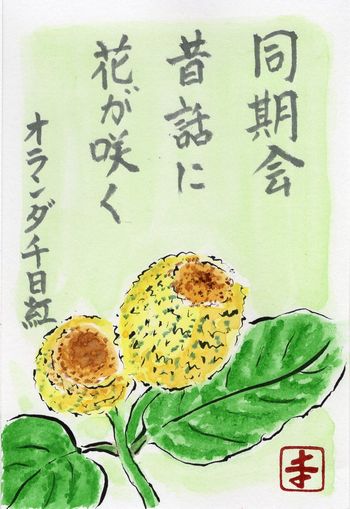 同期会
昔話に
花が咲く
オランダ千日紅